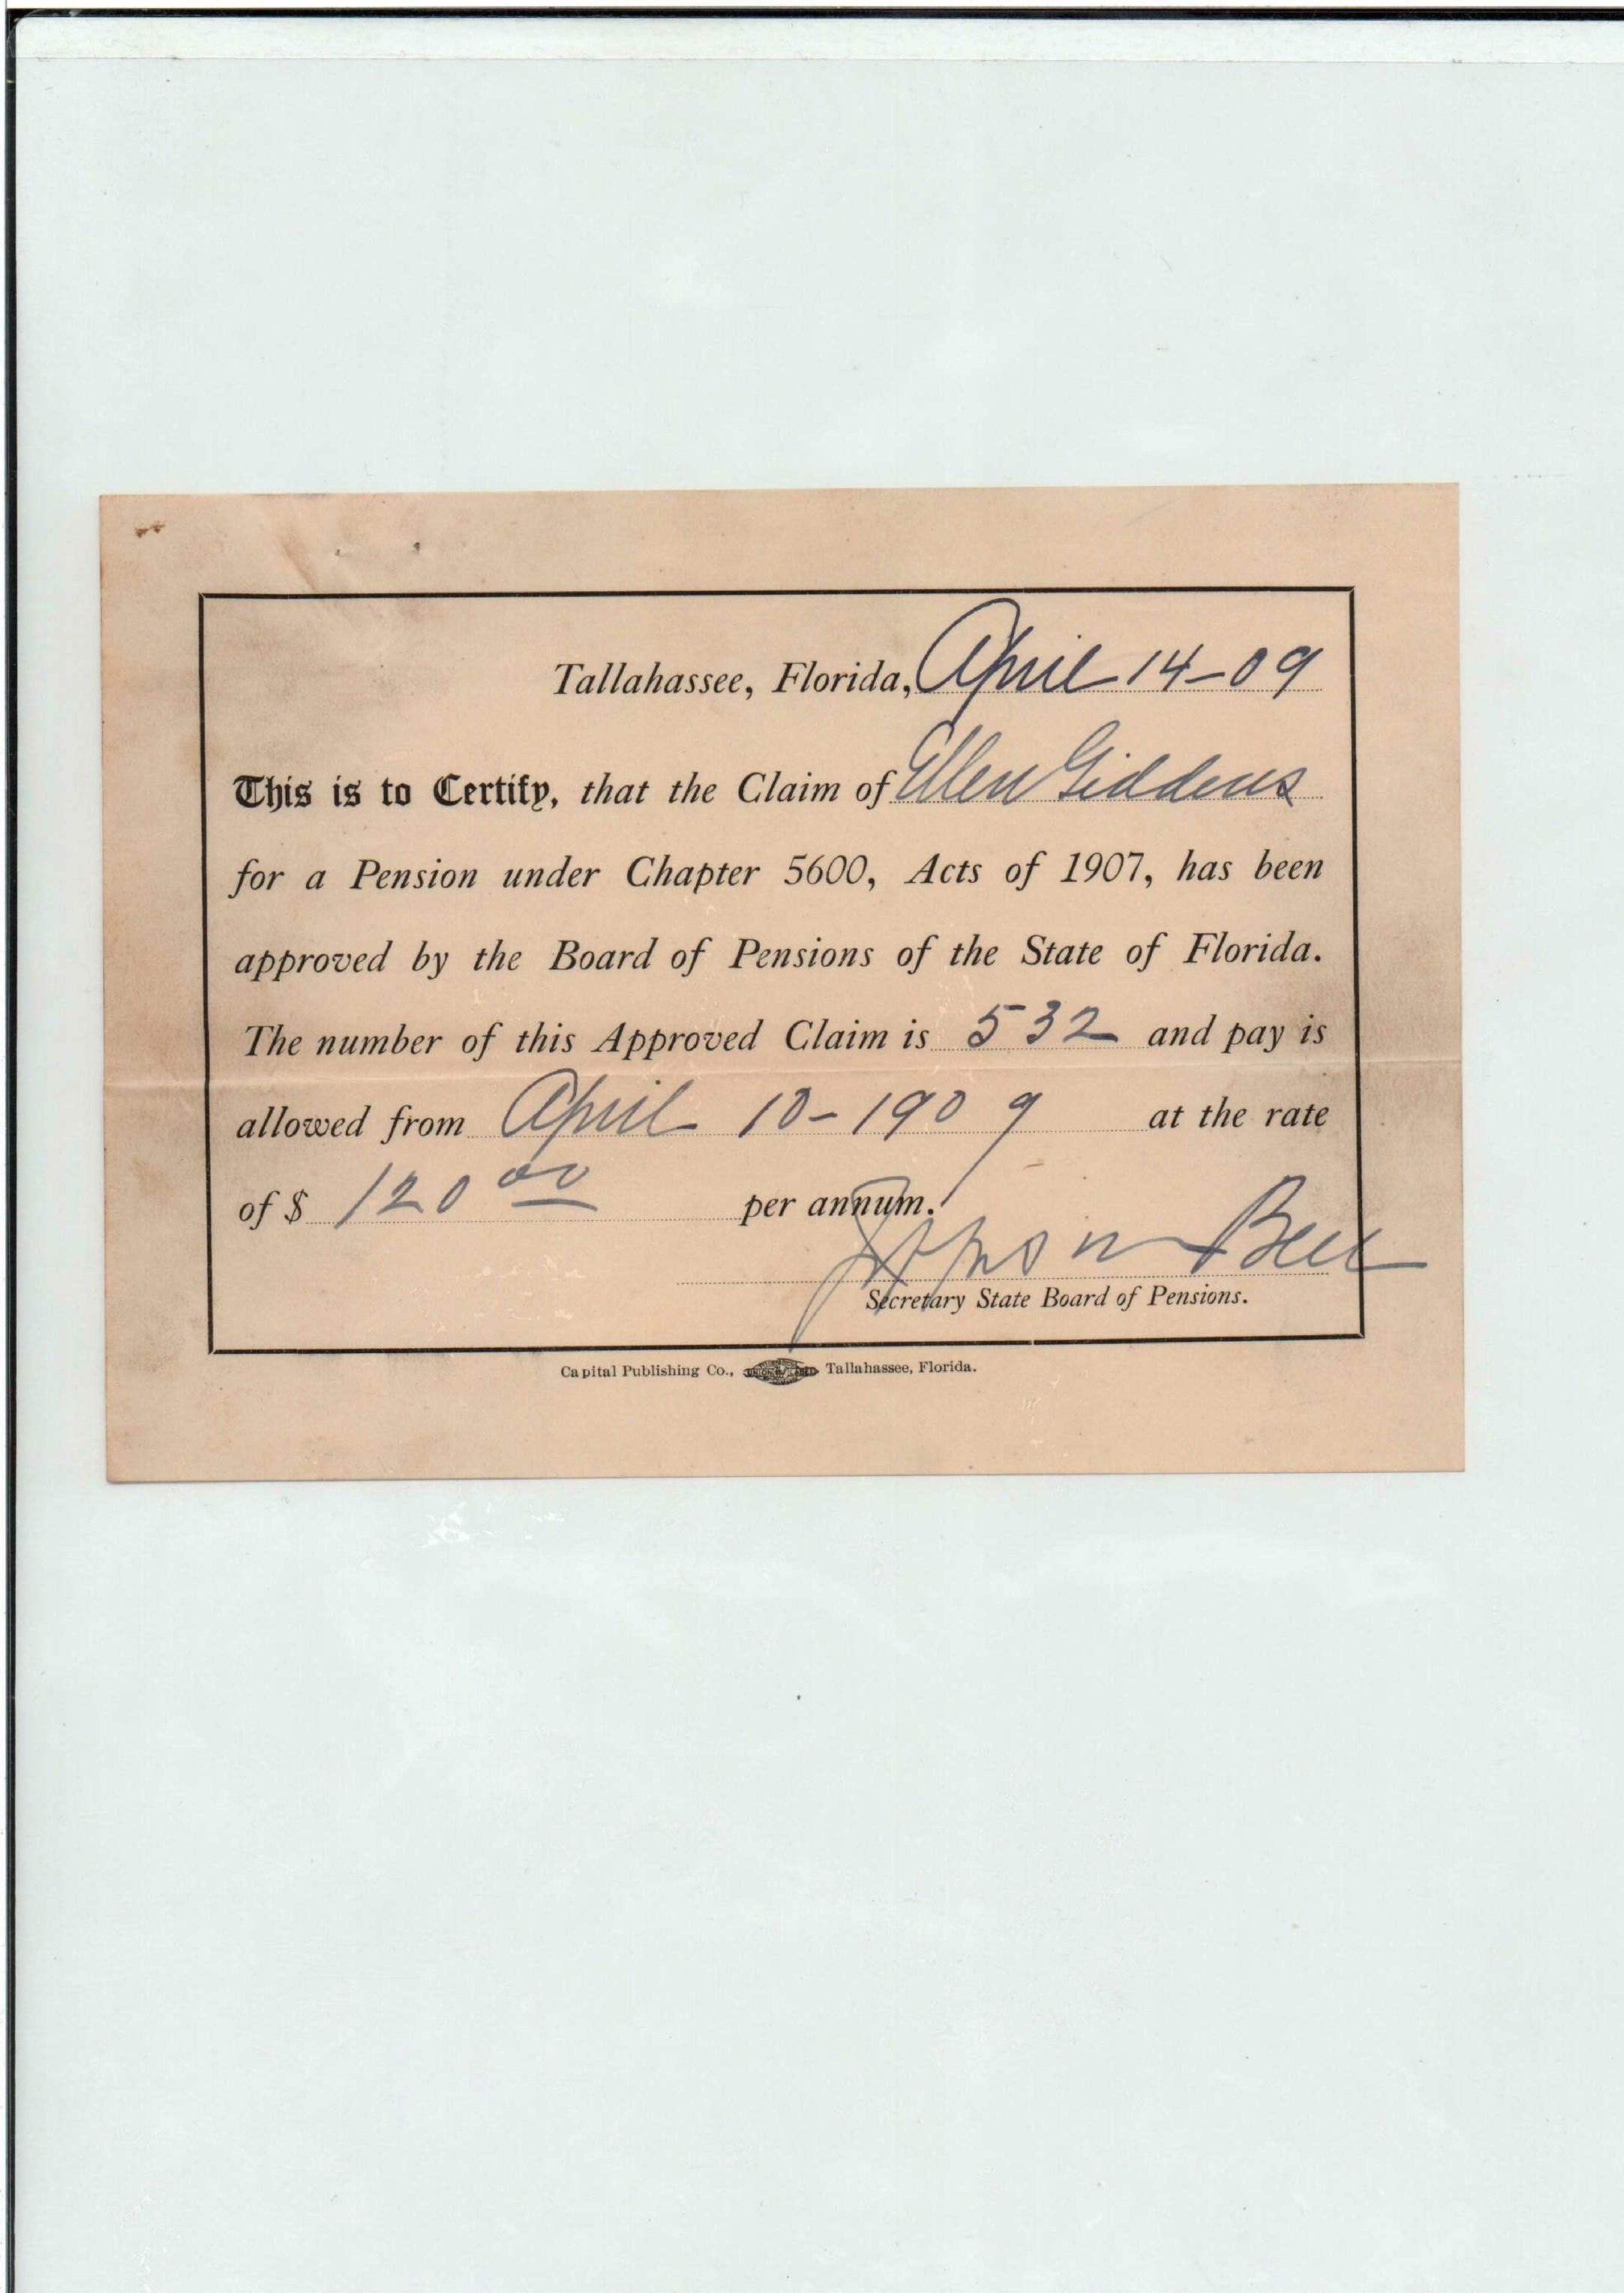 Tallahassee, Florida, April 14-09
This is to Certify, that the Claim of Ellen Giddens
for a Pension under Chapter 5600, Acts of 1907, has been
approved by the Board of Pensions of the State of Florida.
The number of this Approved Claim is 532 and pay is
allowed from April 10-1909 at the rate
of $ 120 00 per annum.
Bell
Secretary State Board of Pensions.
Capital Publishing Co., Tallahassee, Florida.